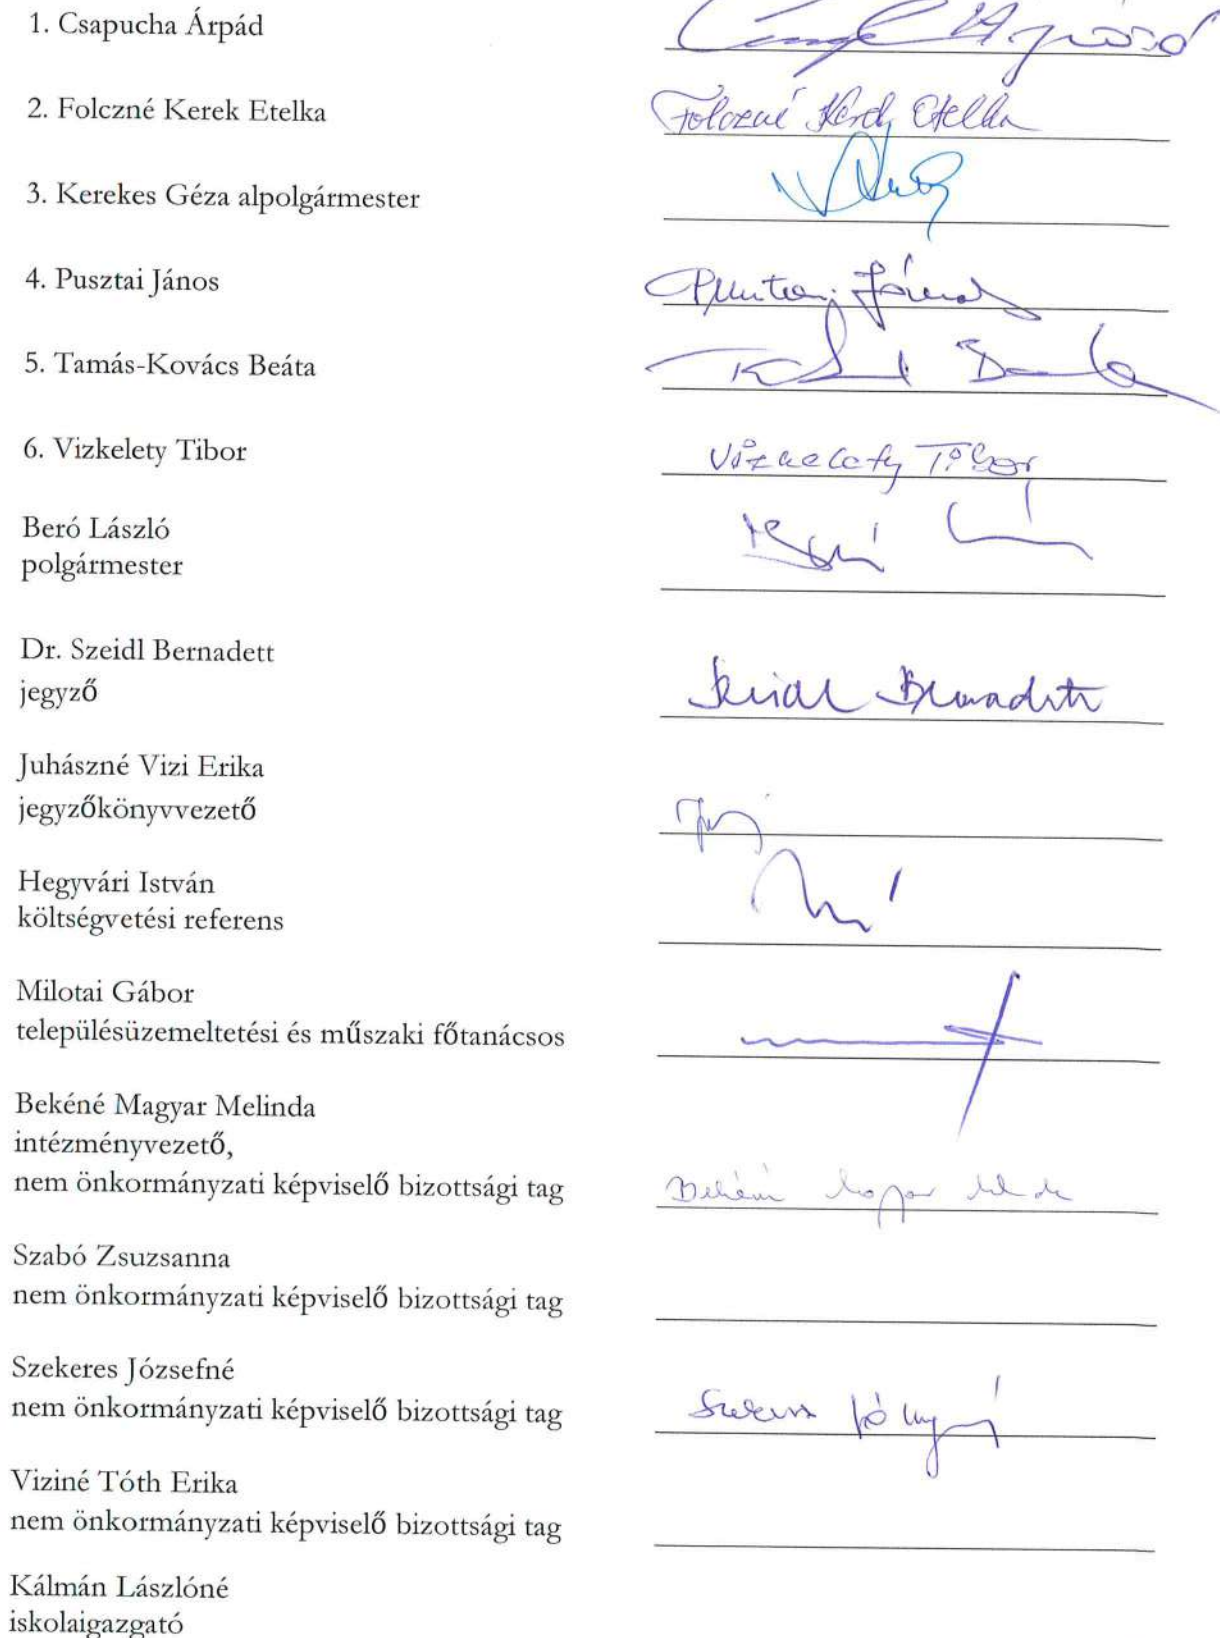 1. Csapucha Árpád
2. Folczné Kerek Etelka
Folczné Kerek Etelka
3. Kerekes Géza alpolgármester
4. Pusztai János
Pusztai János
5. Tamás-Kovács Beáta
6. Vizkelety Tibor
Vizkelety Tibor
Beró László
polgármester
Dr. Szeidl Bernadett
jegyző
Szeidl Bernadett
Juhászné Vizi Erika
jegyzőkönyvvezető
Hegyvári István
költségvetési referens
Milotai Gábor
településüzemeltetési és műszaki főtanácsos
Bekéné Magyar Melinda
intézményvezető,
nem önkormányzati képviselő bizottsági tag
Szabó Zsuzsanna
nem önkormányzati képviselő bizottsági tag
Szekeres Józsefné
nem önkormányzati képviselő bizottsági tag
Viziné Tóth Erika
nem önkormányzati képviselő bizottsági tag
Kálmán Lászlóné
iskolaigazgató